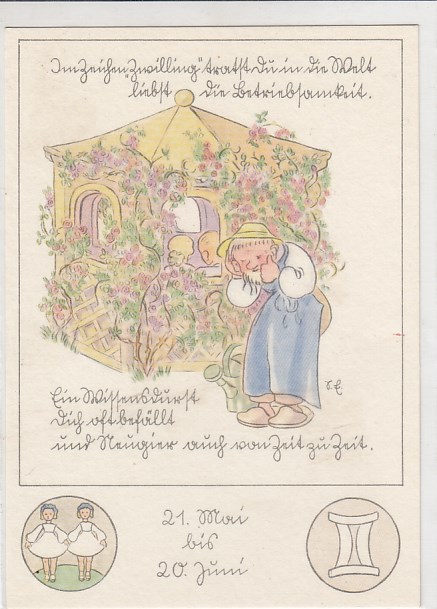 Im Zeichen „Zwilling“ tratst Du in die Welt
liebst die Betriebsamkeit.
Ein Wissensdurst
Dich oft befällt
und Neugier auch von Zeit zu Zeit.
21. Mai
bis
20. Juni